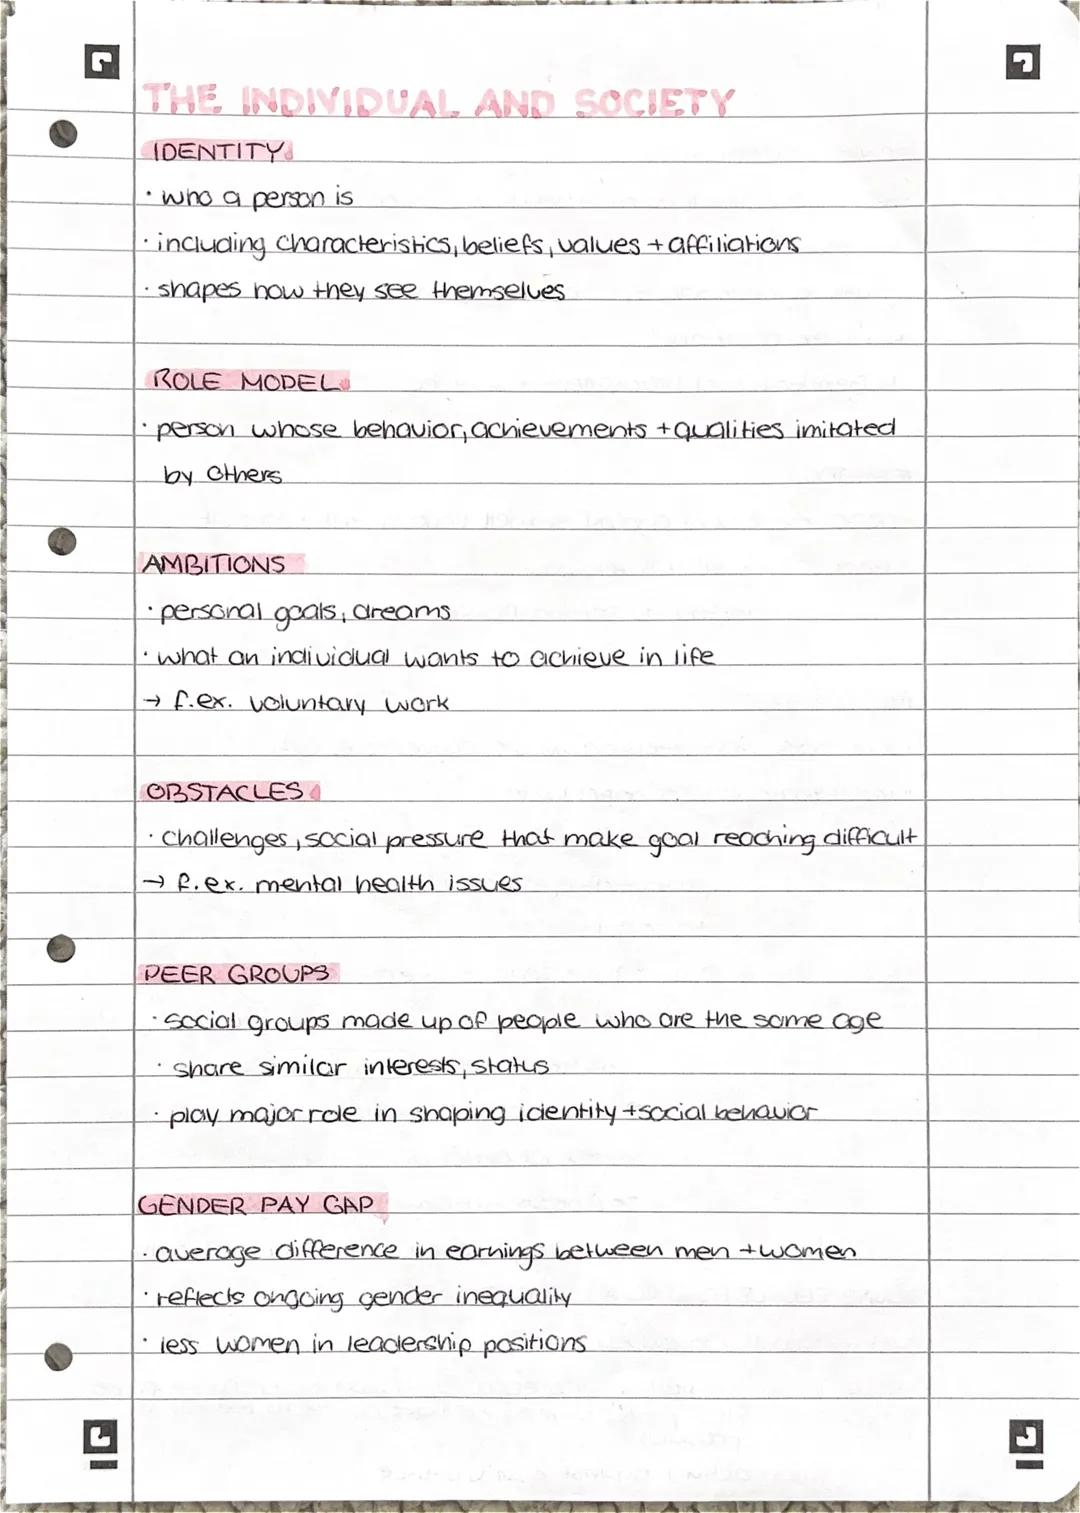 THE INDIVIDUAL AND SOCIETY
IDENTITY
· who a person is
· including characteristics, beliefs, values + affiliations
· shapes how they see themselves
ROLE MODEL
· person whose behavior, achievements + qualities imitated
by others
AMBITIONS
· personal goals, dreams
· what an individual wants to achieve in life
→ f.ex. voluntary work
OBSTACLES
· challenges, social pressure that make goal reaching difficult
→ f.ex. mental health issues
PEER GROUPS
· social groups made up of people who are the same age
· share similar interests, status
· play major role in shaping identity + social behavior
GENDER PAY GAP
· average difference in earnings between men + women
· reflects ongoing gender inequality
· less women in leadership positions